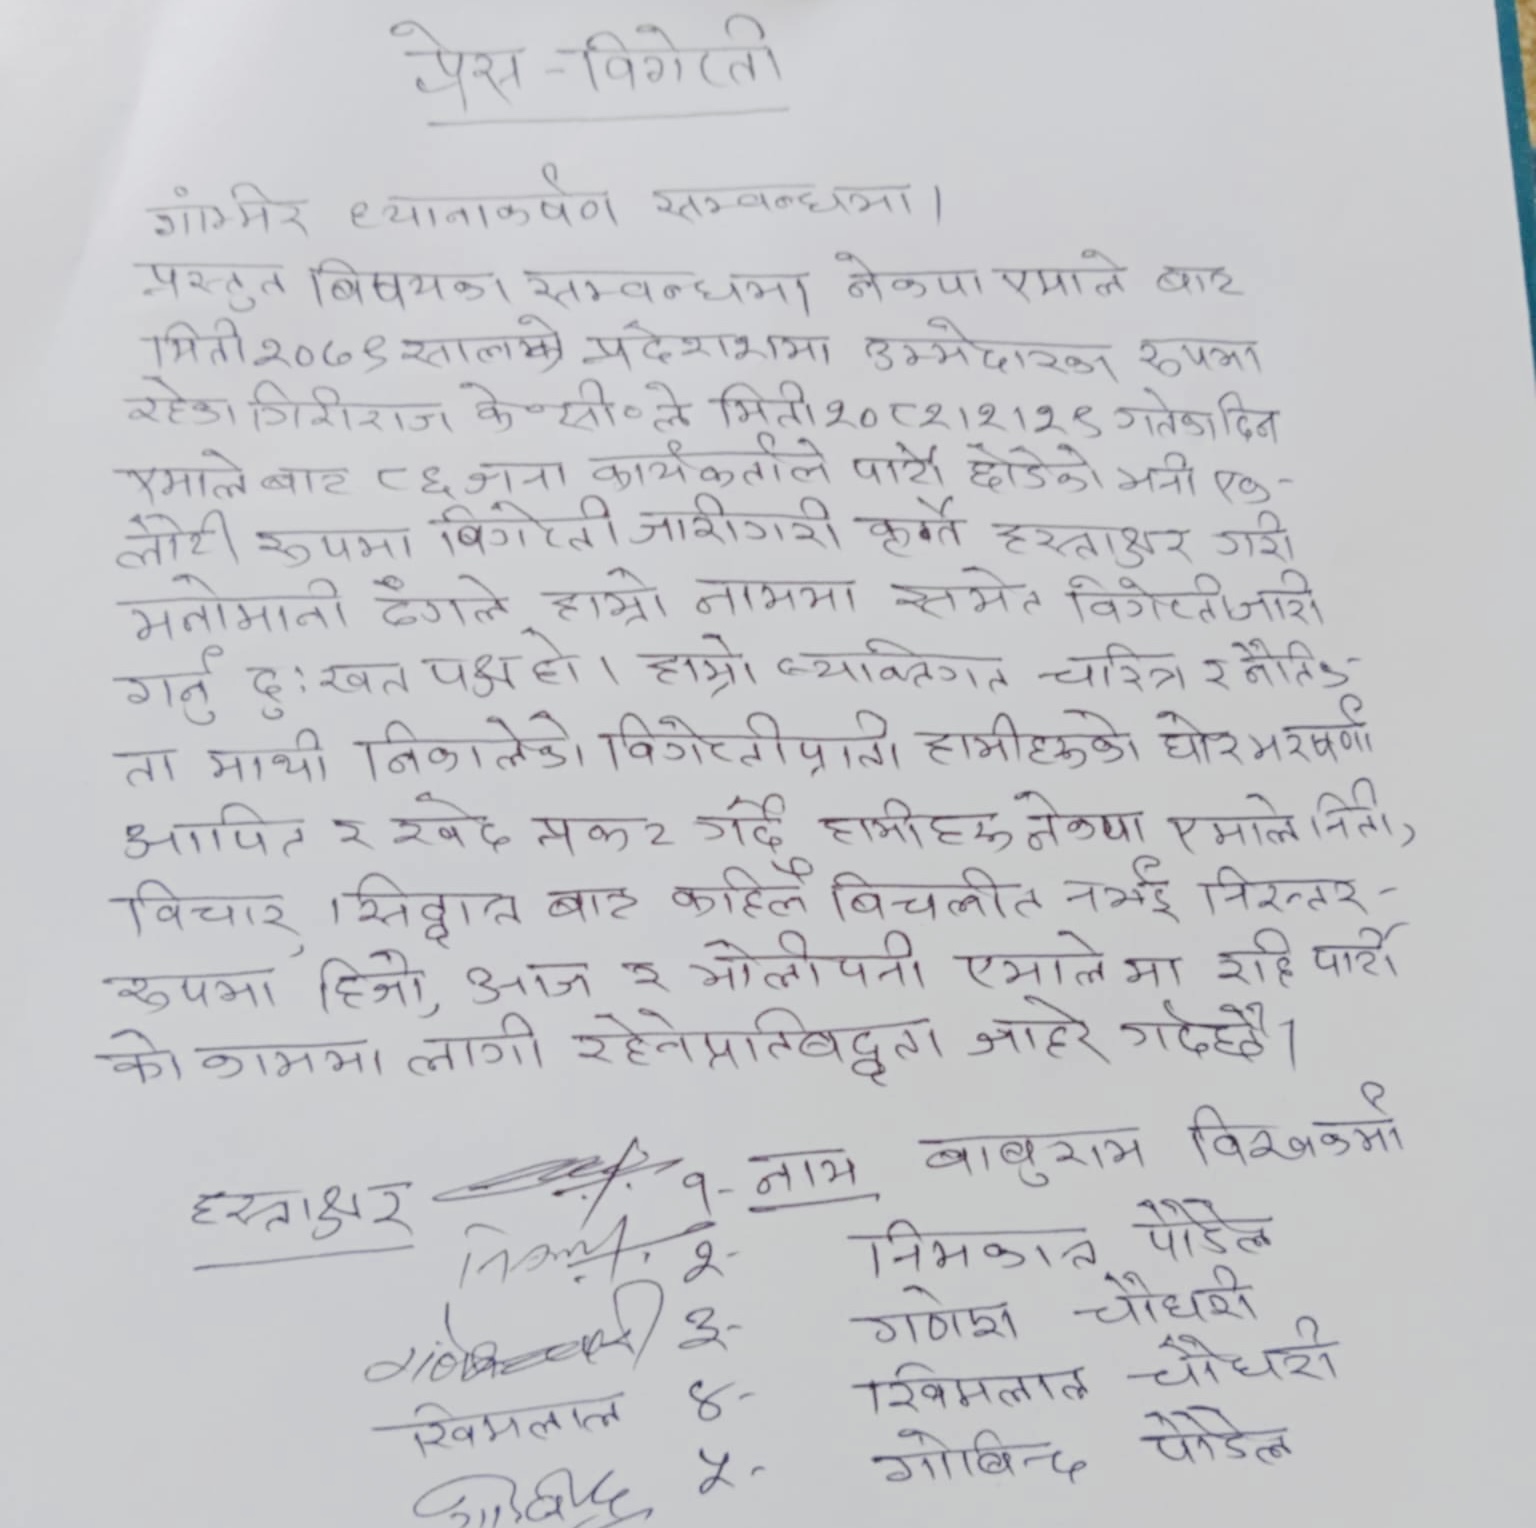 प्रेस - विगेप्ती
गंम्भिर ध्यानाकर्षण सम्वन्धमा।
प्रस्तुत बिषयका सम्वन्धमा नेकपा एमाले बाट
मिती २०७९ सालको प्रदेशसभा उम्मेदारका रूपमा
रहेका गिरीराज के॰सी॰ले मिती २०८२।२।२९ गतेका दिन
एमाले बाट ८६ जना कार्यकर्ताले पार्टी छोडेको भनी एक-
लौटी रूपमा बिगेप्ती जारी गरी कृर्ते हस्ताक्षर गरी
मनोमानी ढंगले हाम्रो नाममा समेत विगेप्ती जारी
गर्नु दुःखत पक्ष हो। हाम्रो ब्यक्तिगत चरित्र र नैतिक-
ता माथी निकालेको विगेप्ती प्रती हामीहरूको घोर भर्षणा
आपित र खेद प्रकट गर्दै हामीहरू नेकपा एमाले निती,
विचार, सिद्धान्त बाट कहिलै बिचलीत नभई निरन्तर-
रूपमा हिजो, आज र भोली पनी एमाले मा रहि पार्टी
को काममा लागी रहने प्रतिबद्धता जाहेर गर्दछौं।
हस्ताक्षर १- नाम बाबुराम विश्वकर्मा
२- निमकान्त पौडेल
३- गणेश चौधरी
खिमलाल ४- खिमलाल चौधरी
५- गोबिन्द पौडेल